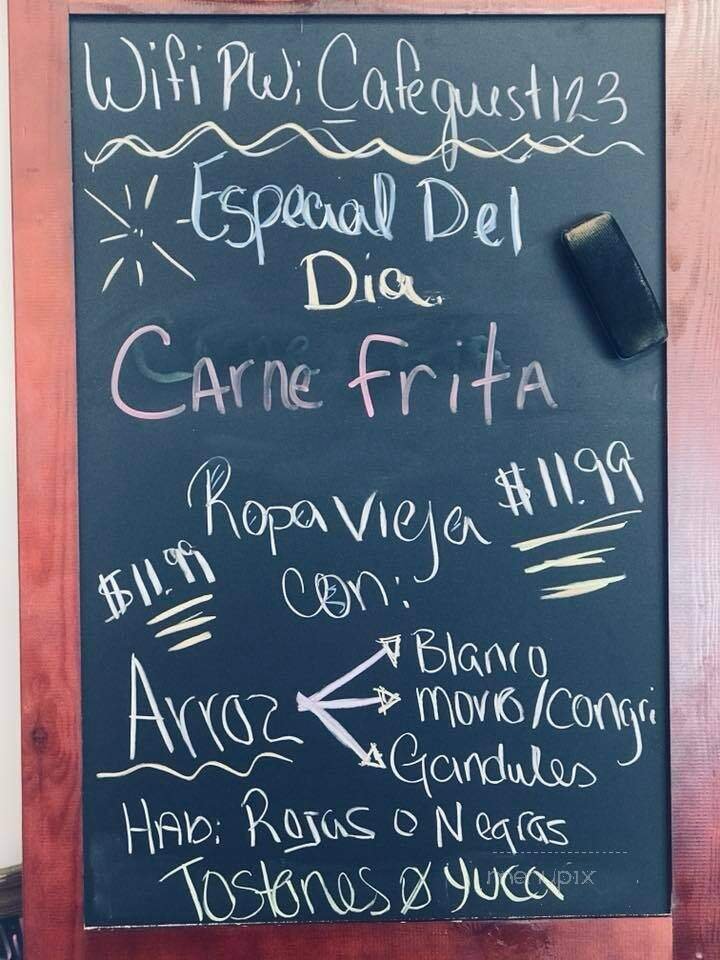 Wifi PW: Cafeguest123
Especial Del
Dia.
Carne Frita
Ropa Vieja $11.99
$11.99 con:
Blanco
Arroz Moro/Congri
Gandules
Hab: Rojas o Negras
Tostones o Yuca
menupix